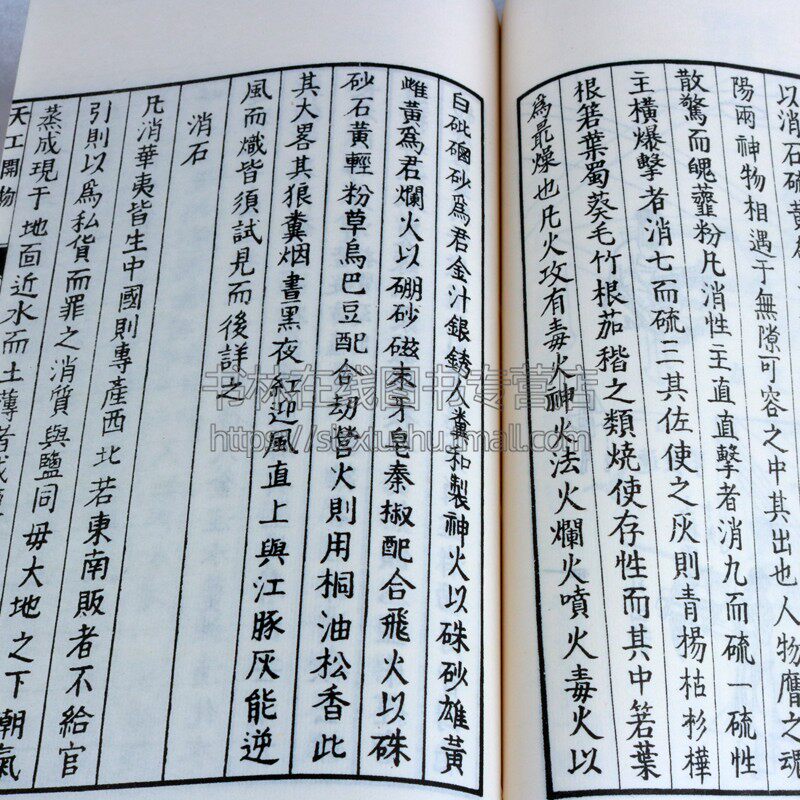 以消石硫黃
陽兩神物相遇于無隙可容之中其出也人物膺之魂
散驚而魄虀粉凡消性主直直擊者消九而硫一硫性
主橫爆擊者消七而硫三其佐使之灰則青楊枯杉樺
根箬葉蜀葵毛竹根茄稭之類燒使存性而其中箬葉
為最燥也凡火攻有毒火神火法火爛火噴火毒火以
白砒硇砂為君金汁銀銹人糞和製神火以硃砂雄黃
雌黃為君爛火以硼砂磁末牙皂秦椒配合飛火以硃
砂石黃輕粉草烏巴豆配合劫營火則用桐油松香此
其大畧其狼糞烟晝黑夜紅迎風直上與江豚灰能逆
風而熾皆須試見而後詳之
消石
凡消華夷皆生中國則專產西北若東南販者不給官
引則以為私貨而罪之消質與鹽同毋大地之下朝氣
蒸成現于地面近水而土薄者成
天工開物
书林在线图书专营店